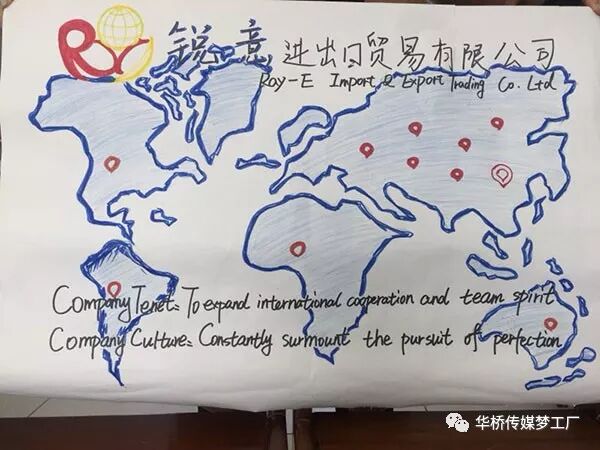 锐意进出口贸易有限公司
Roy-E Import & Export Trading Co. Ltd
Company Tenet: To expand international cooperation and team spirit
Company Culture: Constantly surmount the pursuit of perfection
华桥传媒梦工厂